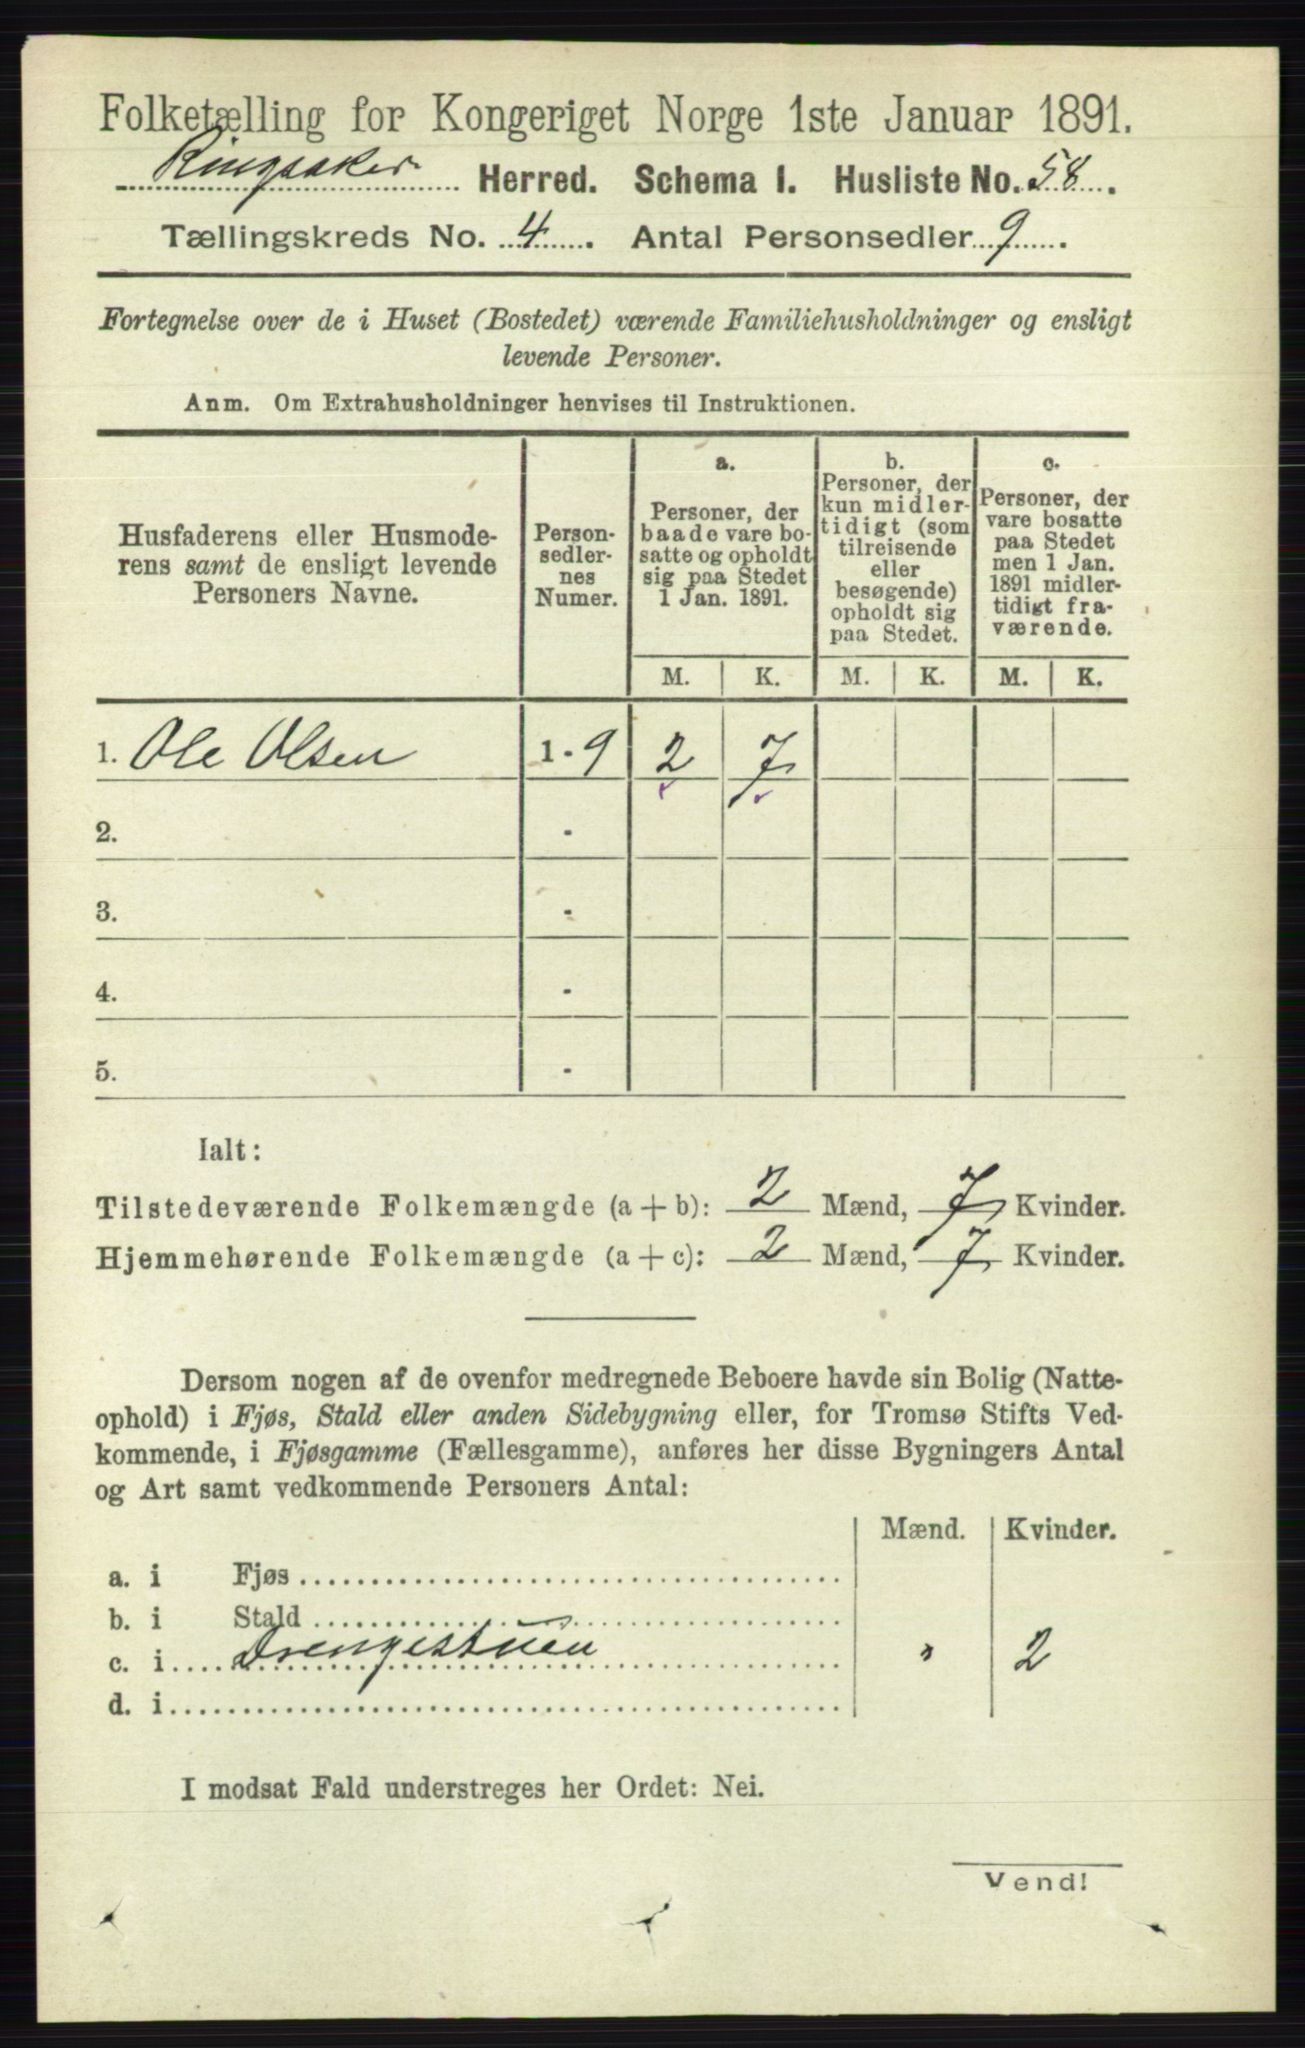 Folketælling for Kongeriget Norge 1ste Januar 1891.
Ringsaker Herred. Schema I. Husliste No. 58.
Tællingskreds No. 4. Antal Personsedler 9.
Fortegnelse over de i Huset (Bostedet) værende Familiehusholdninger og ensligt
levende Personer.
Anm. Om Extrahusholdninger henvises til Instruktionen.
Husfaderens eller Husmode-
rens samt de ensligt levende
Personers Navne.
Person-
sedler-
nes
Numer.
a.
Personer, der
baade vare bo-
satte og opholdt
sig paa Stedet
1 Jan. 1891.
b.
Personer, der
kun midler-
tidigt (som
tilreisende
eller
besøgende)
opholdt sig
paa Stedet.
c.
Personer, der
vare bosatte
paa Stedet
men 1 Jan.
1891 midler-
tidigt fra-
værende.
M. K. M. K. M. K.
1. Ole Olsen 1 - 9 2 7
2. -
3. -
4. -
5. -
Ialt:
Tilstedeværende Folkemængde (a + b): 2 Mænd, 7 Kvinder.
Hjemmehørende Folkemængde (a + c): 2 Mænd, 7 Kvinder.
Dersom nogen af de ovenfor medregnede Beboere havde sin Bolig (Natte-
ophold) i Fjøs, Stald eller anden Sidebygning eller, for Tromsø Stifts Ved-
kommende, i Fjøsgamme (Fællesgamme), anføres her disse Bygningers Antal
og Art samt vedkommende Personers Antal:
Mænd. Kvinder.
a. i Fjøs
b. i Stald
c. i Drengestuen " 2
d. i
I modsat Fald understreges her Ordet: Nei.
Vend!